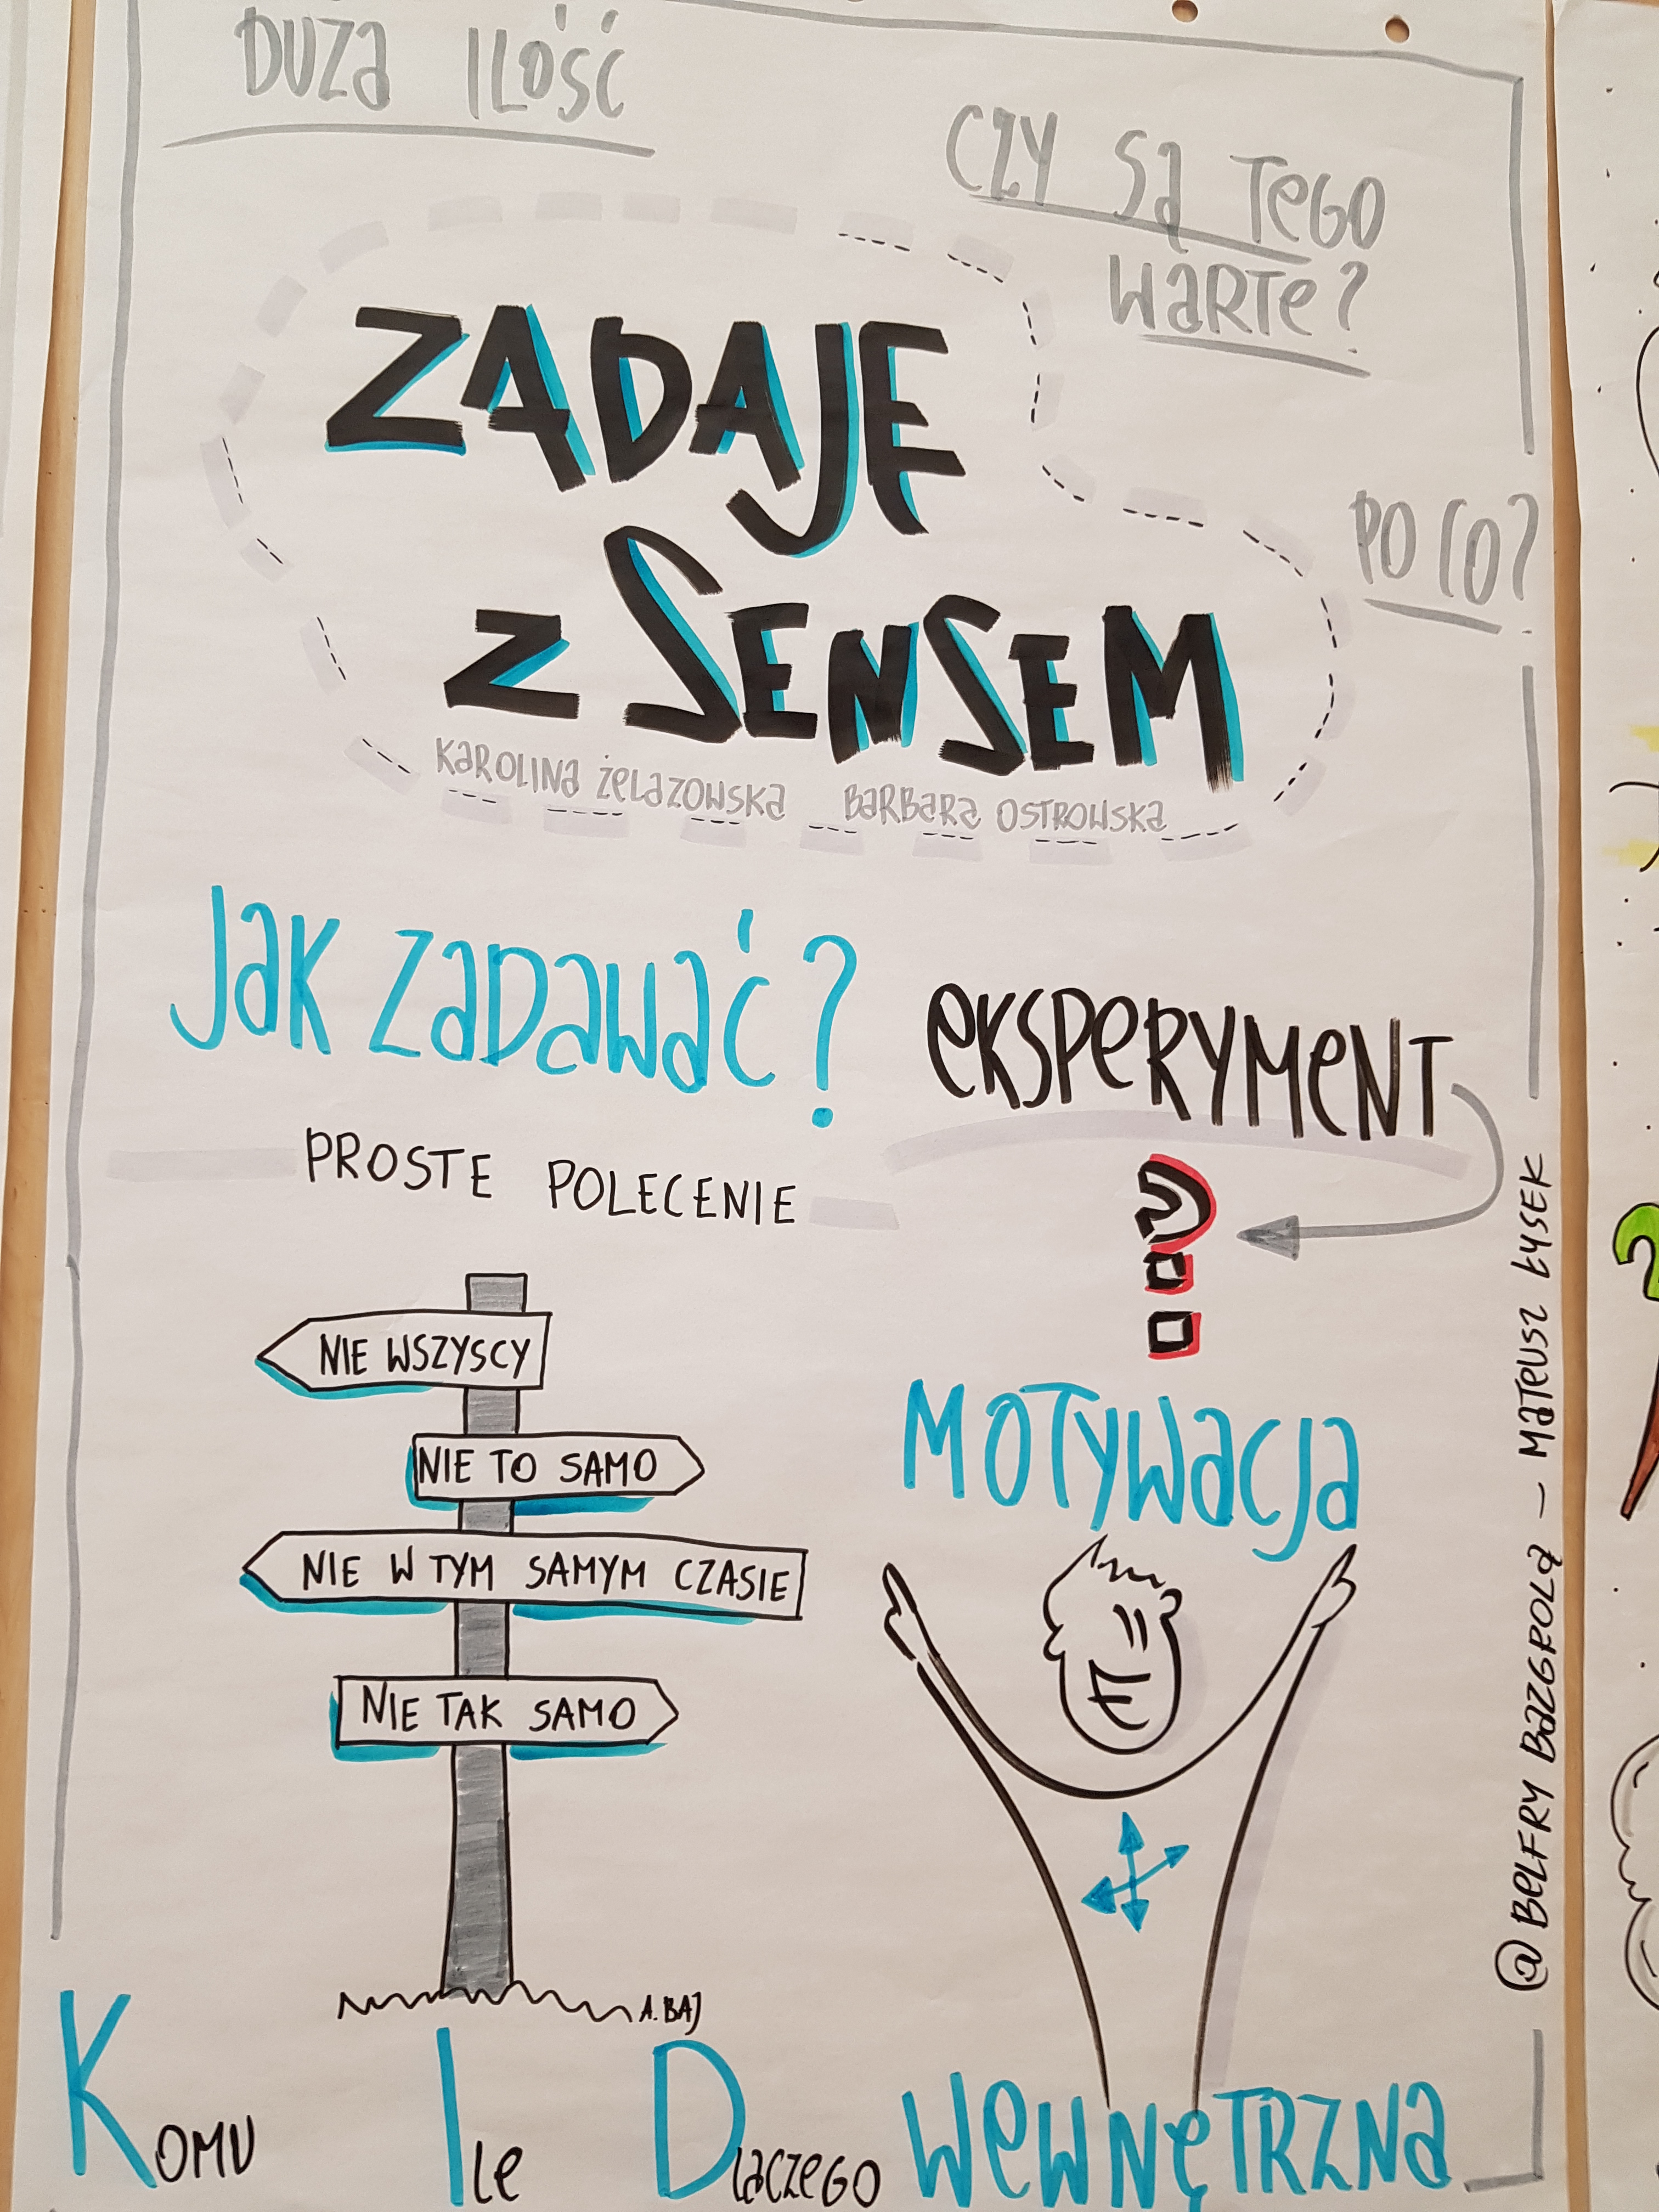 DUŻA ILOŚĆ
CZY SĄ TEGO
WARTE?
ZADAJĘ
PO CO?
Z SENSEM
KAROLINA ŻELAZOWSKA BARBARA OSTROWSKA
JAK ZADAWAĆ?
EKSPERYMENT
PROSTE POLECENIE
NIE WSZYSCY
NIE TO SAMO
NIE W TYM SAMYM CZASIE
NIE TAK SAMO
A. BAJ
MOTYWACJA
WEWNĘTRZNA
KOMU ILE DLACZEGO
@BELFRY BAZGROLĄ – MATEUSZ ŁYSEK